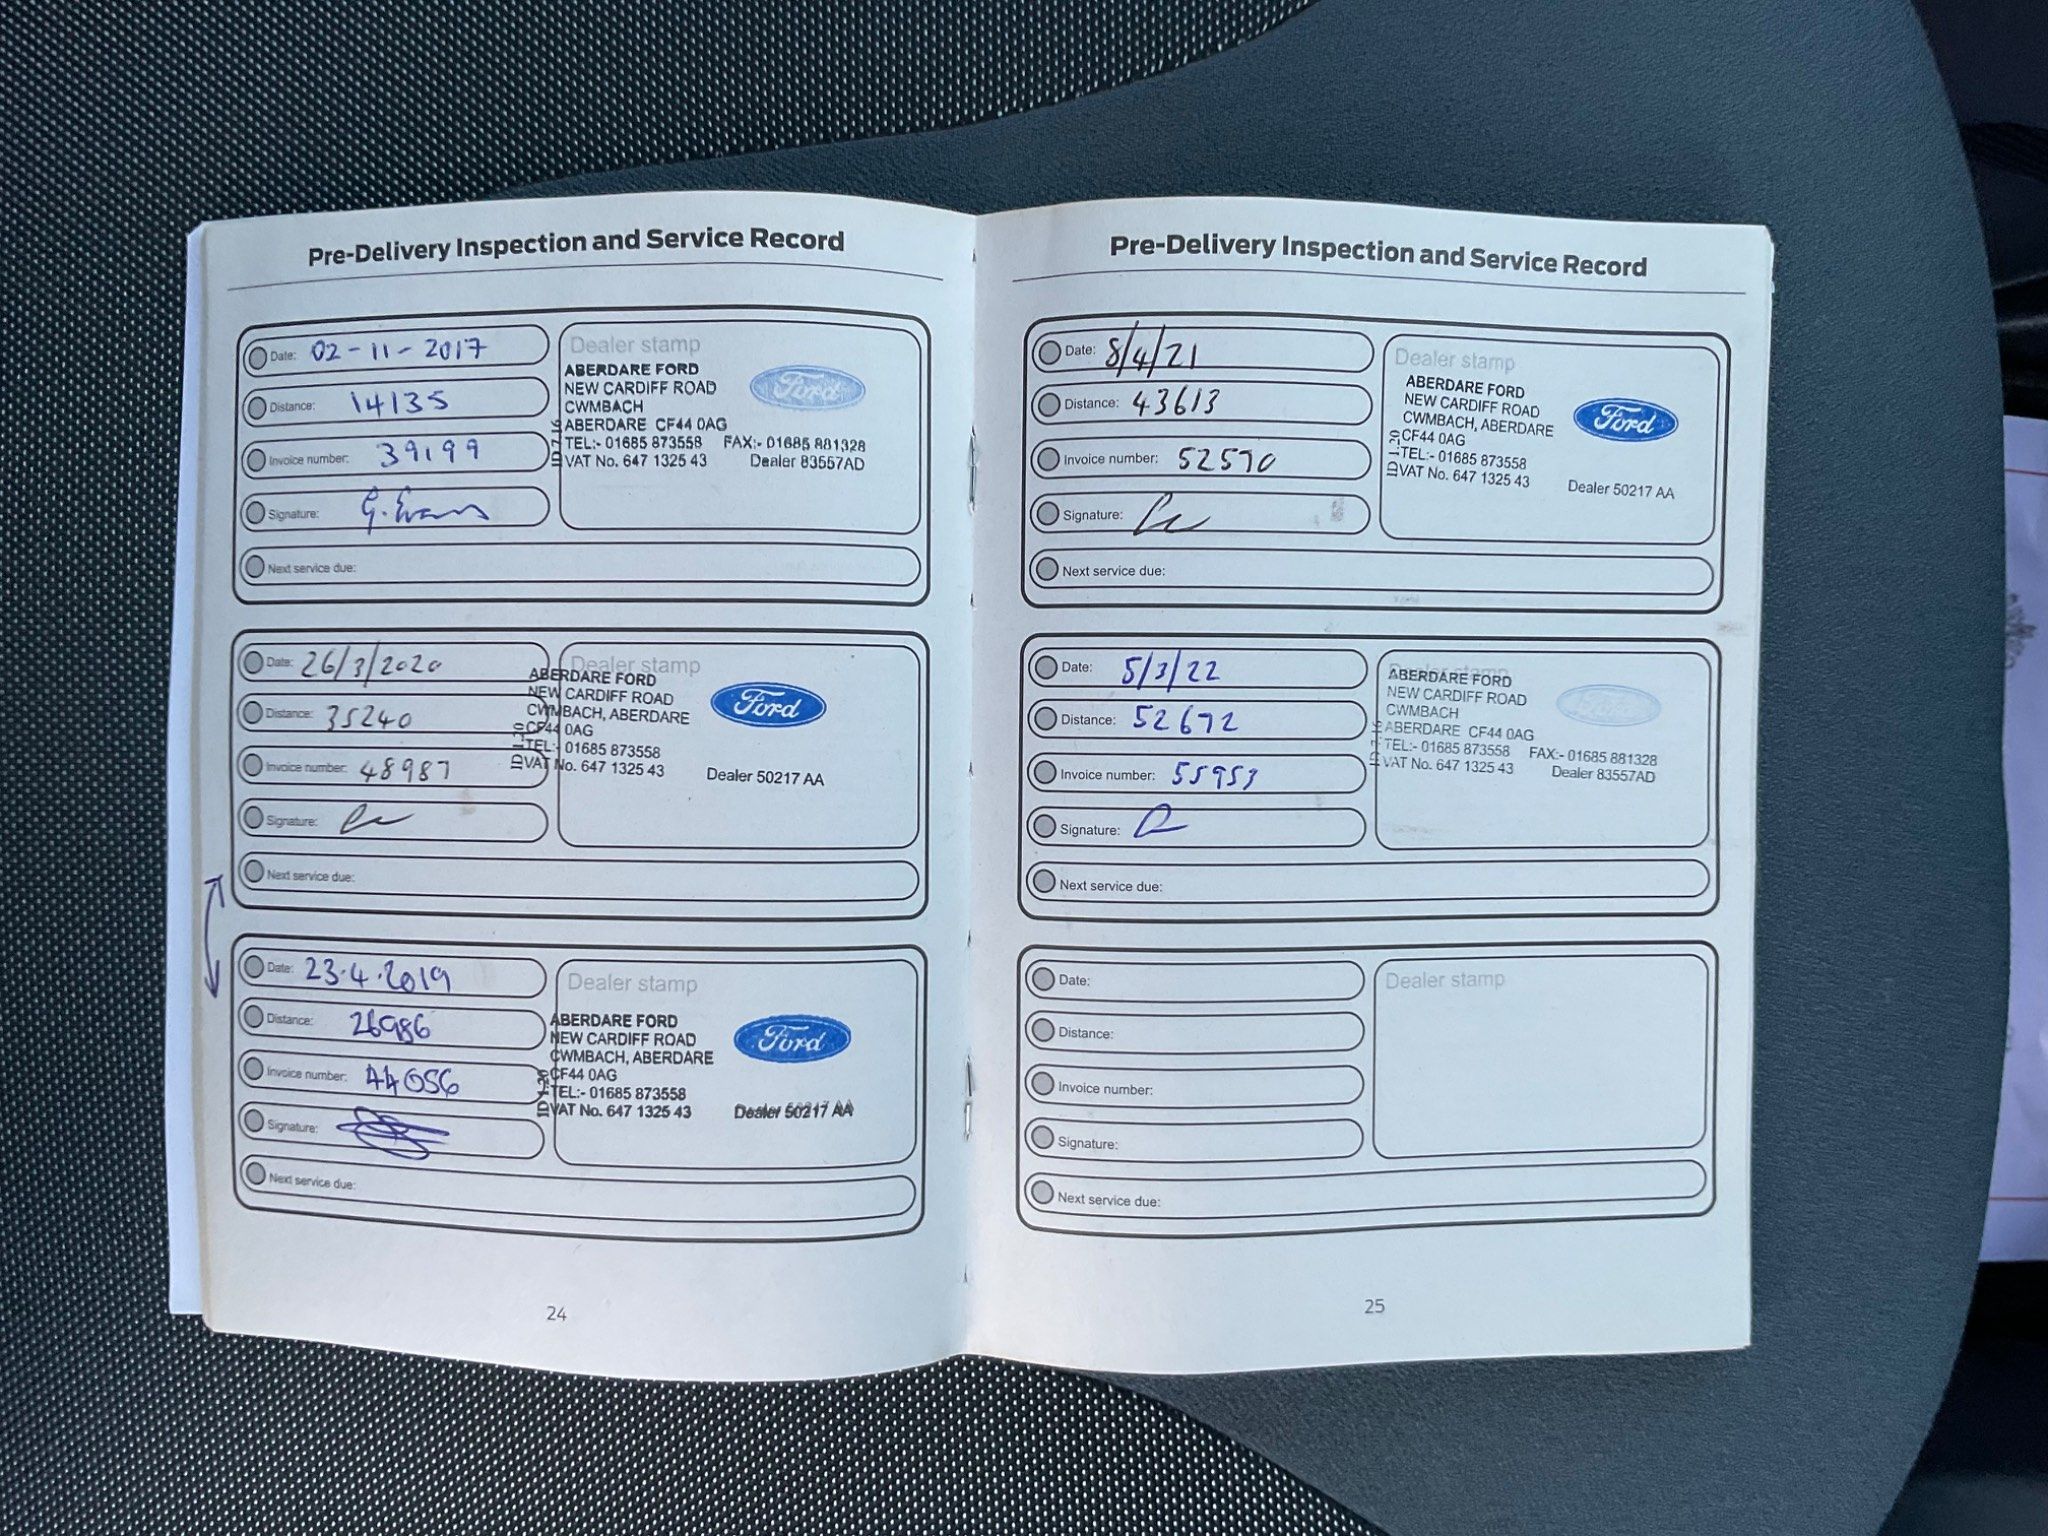 Pre-Delivery Inspection and Service Record
Date: 02-11-2017
Distance: 14135
Invoice number: 39199
Signature: G. Evans
Next service due:
Dealer stamp
ABERDARE FORD
NEW CARDIFF ROAD
CWMBACH
ABERDARE CF44 0AG
TEL:- 01685 873558 FAX:- 01685 881328
VAT No. 647 1325 43 Dealer 83557AD
Ford
Date: 26/3/2020
Distance: 35240
Invoice number: 48987
Signature:
Next service due:
Dealer stamp
ABERDARE FORD
NEW CARDIFF ROAD
CWMBACH, ABERDARE
CF44 0AG
TEL:- 01685 873558
VAT No. 647 1325 43 Dealer 50217 AA
Ford
Date: 23.4.2019
Distance: 26986
Invoice number: 44056
Signature:
Next service due:
Dealer stamp
ABERDARE FORD
NEW CARDIFF ROAD
CWMBACH, ABERDARE
CF44 0AG
TEL:- 01685 873558
VAT No. 647 1325 43 Dealer 50217 AA
Ford
24
Pre-Delivery Inspection and Service Record
Date: 8/4/21
Distance: 43613
Invoice number: 52570
Signature:
Next service due:
Dealer stamp
ABERDARE FORD
NEW CARDIFF ROAD
CWMBACH, ABERDARE
CF44 0AG
TEL:- 01685 873558
VAT No. 647 1325 43 Dealer 50217 AA
Ford
Date: 5/3/22
Distance: 52672
Invoice number: 55953
Signature:
Next service due:
Dealer stamp
ABERDARE FORD
NEW CARDIFF ROAD
CWMBACH
ABERDARE CF44 0AG
TEL:- 01685 873558 FAX:- 01685 881328
VAT No. 647 1325 43 Dealer 83557AD
Ford
Date:
Distance:
Invoice number:
Signature:
Next service due:
Dealer stamp
25